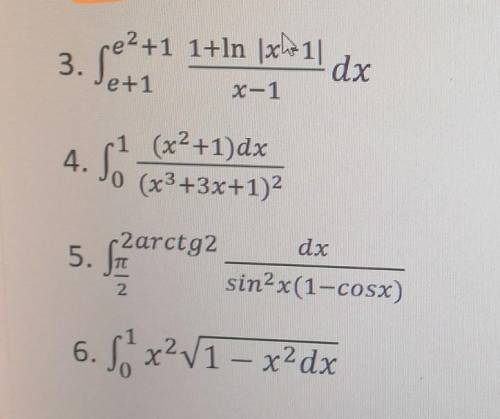 3. ∫_{e+1}^{e²+1} \frac{1+ln |x-1|}{x-1} dx
4. ∫_0^1 \frac{(x²+1)dx}{(x³+3x+1)²}
5. ∫_{\frac{π}{2}}^{2arctg2} \frac{dx}{sin²x(1-cosx)}
6. ∫_0^1 x²√{1 - x²dx}